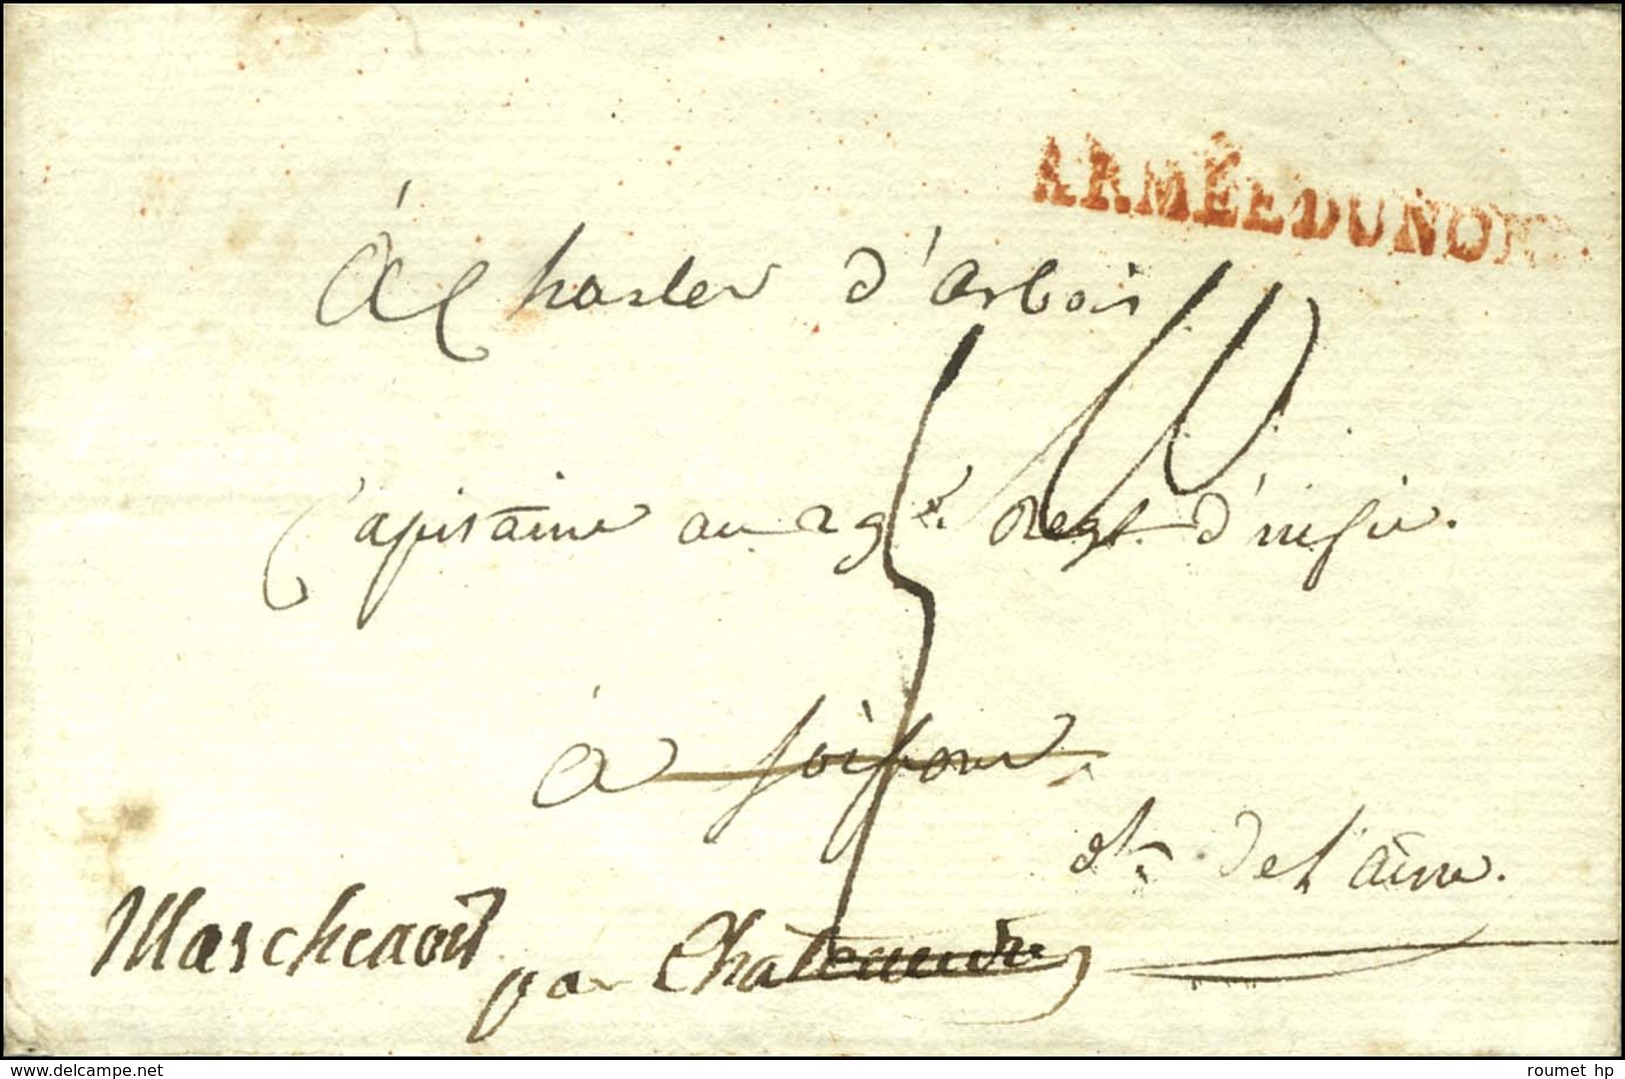 ARMÉE DU NORD
à Charles d'arbois
10
Capitaine au 29e. Regt. d'infie.
5
à soissons
dt. de l'aisne.
Marchenoir
par Châteaudun
www.delcampe.net
roumet hp